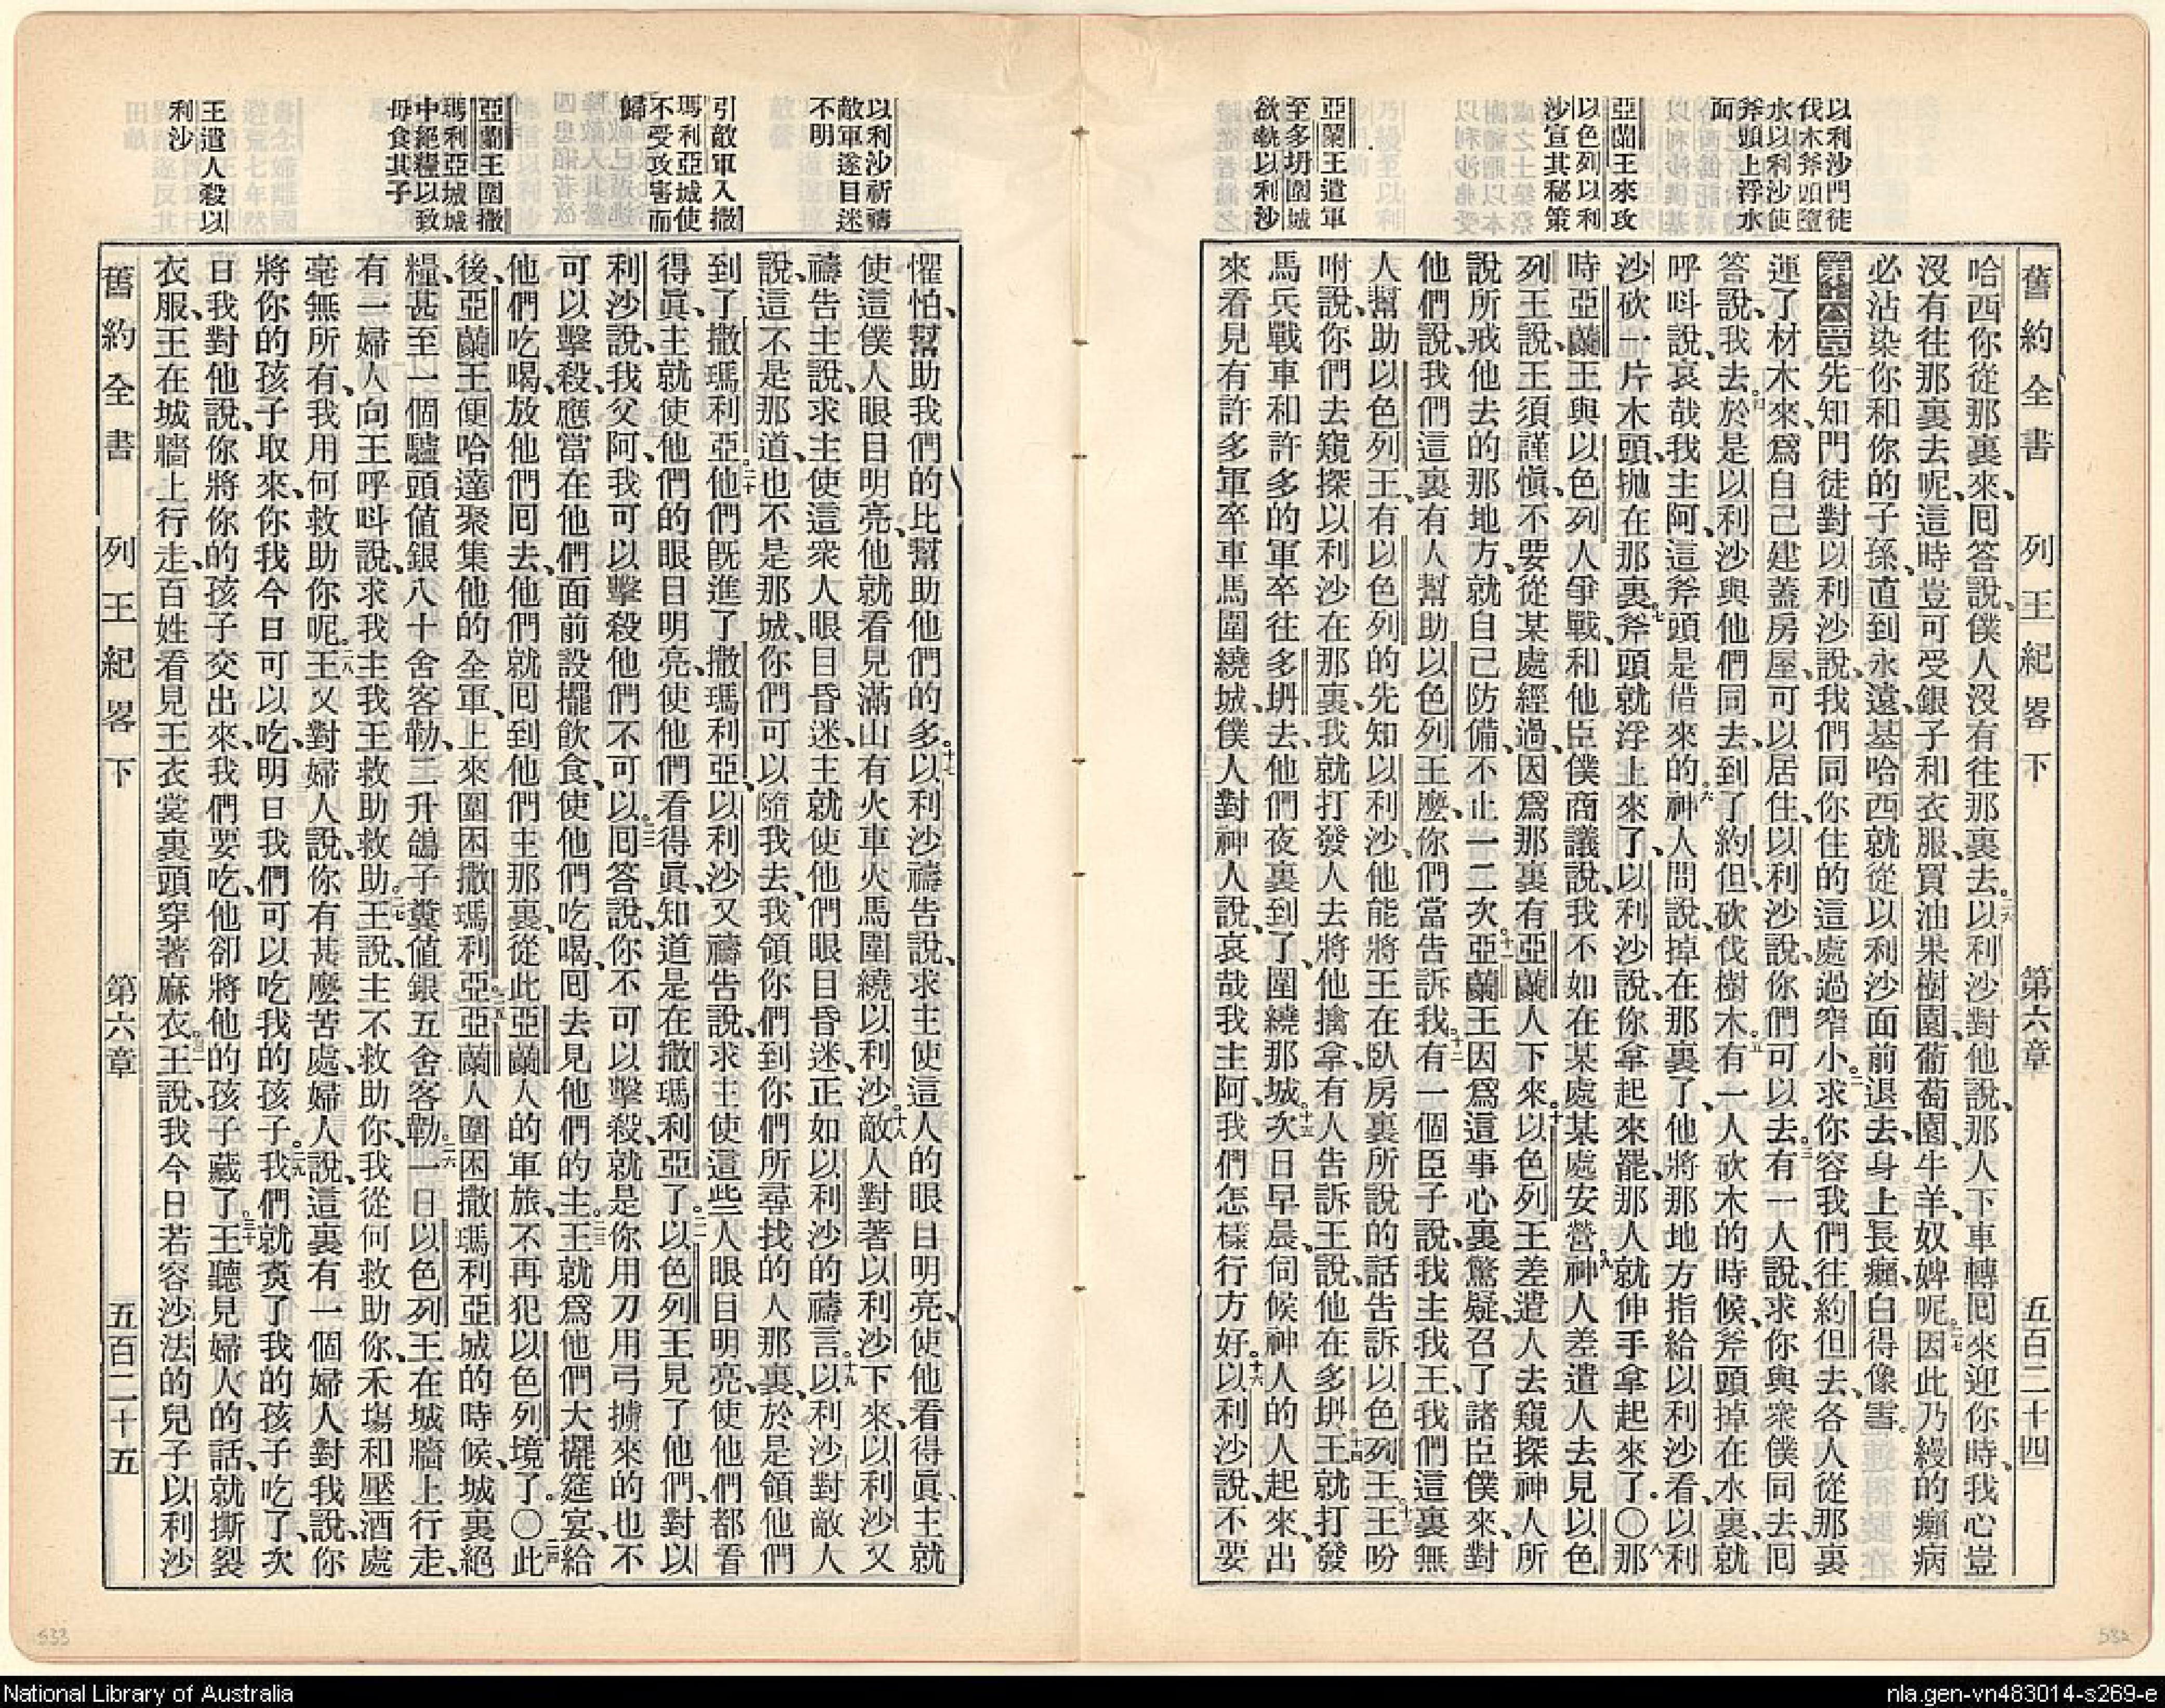 以利沙門徒
伐木斧頭墮
水以利沙使
斧頭上浮水
面
亞蘭王來攻
以色列以利
沙宣其秘策
亞蘭王遣軍
至多坍圍城
欲執以利沙
舊約全書 列王紀畧下 第六章 五百二十四
哈西你從那裏來、囘答說、僕人沒有往那裏去。二六以利沙對他說、那人下車轉囘來迎你時、我心豈
沒有往那裏去呢、這時豈可受銀子和衣服、買油果樹園、葡萄園、牛羊、奴婢呢。二七因此乃縵的癩病
必沾染你和你的子孫、直到永遠、基哈西就從以利沙面前退去、身上長癩、白得像雪。
第六章 一先知門徒對以利沙說、我們同你住的這處過窄小。二求你容我們往約但去、各人從那裏
運了材木來、爲自己建蓋房屋、可以居住、以利沙說、你們可以去。三有一人說、求你與衆僕同去、囘
答說、我去。四於是以利沙與他們同去、到了約但、砍伐樹木。五有一人砍木的時候、斧頭掉在水裏、就
呼呌說、哀哉我主阿、這斧頭是借來的。六神人問說、掉在那裏了、他將那地方指給以利沙看、以利
沙砍一片木頭、拋在那裏、斧頭就浮上來了。七以利沙說、你拿起來罷、那人就伸手拿起來了。〇八那
時亞蘭王與以色列人爭戰、和他臣僕商議說、我不如在某處某處安營。九神人差遣人去見以色
列王說、王須謹愼、不要從某處經過、因爲那裏有亞蘭人下來。十以色列王差遣人去窺探神人所
說所戒他去的那地方、就自己防備、不止一二次。十一亞蘭王因爲這事心裏驚疑、召了諸臣僕來、對
他們說、我們這裏有人幫助以色列王麼、你們當告訴我。十二有一個臣子說、我主我王、我們這裏無
人幫助以色列王、有以色列的先知以利沙、他能將王在臥房裏所說的話告訴以色列王。十三王吩
咐說、你們去窺探以利沙在那裏、我就打發人去將他擒拿、有人告訴王說、他在多坍。十四王就打發
馬兵戰車和許多的軍卒往多坍去、他們夜裏到了、圍繞那城。十五次日早晨、伺候神人的人起來、出
來看見有許多軍卒車馬圍繞城、僕人對神人說、哀哉我主阿、我們怎樣行方好。十六以利沙說、不要
以利沙祈禱
敵軍遂目迷
不明
引敵軍入撒
瑪利亞城使
不受攻害而
歸
亞蘭王圍撒
瑪利亞城城
中絕糧以致
母食其子
王遣人殺以
利沙
懼怕、幫助我們的比幫助他們的多。十七以利沙禱告說、求主使這人的眼目明亮、使他看得眞、主就
使這僕人眼目明亮、他就看見滿山有火車火馬圍繞以利沙。十八敵人對著以利沙下來、以利沙又
禱告主說、求主使這衆人眼目昏迷、主就使他們眼目昏迷、正如以利沙的禱言。十九以利沙對敵人
說、這不是那道、也不是那城、你們可以隨我去、我領你們到你們所尋找的人那裏、於是領他們
到了撒瑪利亞。二十他們旣進了撒瑪利亞、以利沙又禱告說、求主使這些人眼目明亮、使他們都看
得眞、主就使他們的眼目明亮、使他們看得眞、知道是在撒瑪利亞了。二一以色列王見了他們、對以
利沙說、我父阿、我可以擊殺他們不可以。二二囘答說、你不可以擊殺、就是你用刀用弓擄來的也不
可以擊殺、應當在他們面前設擺飲食、使他們吃喝、囘去見他們的主。二三王就爲他們大擺筵宴、給
他們吃喝、放他們囘去、他們就囘到他們主那裏、從此亞蘭人的軍旅、不再犯以色列境了。〇二四此
後亞蘭王便哈達聚集他的全軍、上來圍困撒瑪利亞。二五亞蘭人圍困撒瑪利亞城的時候、城裏絕
糧、甚至一個驢頭值銀八十舍客勒、二升鴿子糞值銀五舍客勒。二六一日以色列王在城牆上行走、
有一婦人向王呼呌說、求我主我王救助救助。二七王說、主不救助你、我從何救助你、禾塲和壓酒處
毫無所有、我用何救助你呢。二八王又對婦人說、你有甚麼苦處、婦人說、這裏有一個婦人對我說、你
將你的孩子取來、你我今日可以吃、明日我們可以吃我的孩子。二九我們就煑了我的孩子吃了、次
日我對他說、你將你的孩子交出來、我們要吃、他卻將他的孩子藏了。三十王聽見婦人的話、就撕裂
衣服、王在城牆上行走、百姓看見王衣裳裏頭穿著麻衣。三一王說、我今日若容沙法的兒子以利沙
舊約全書 列王紀畧下 第六章 五百二十五
533
532
National Library of Australia
nla.gen-vn483014-s269-e